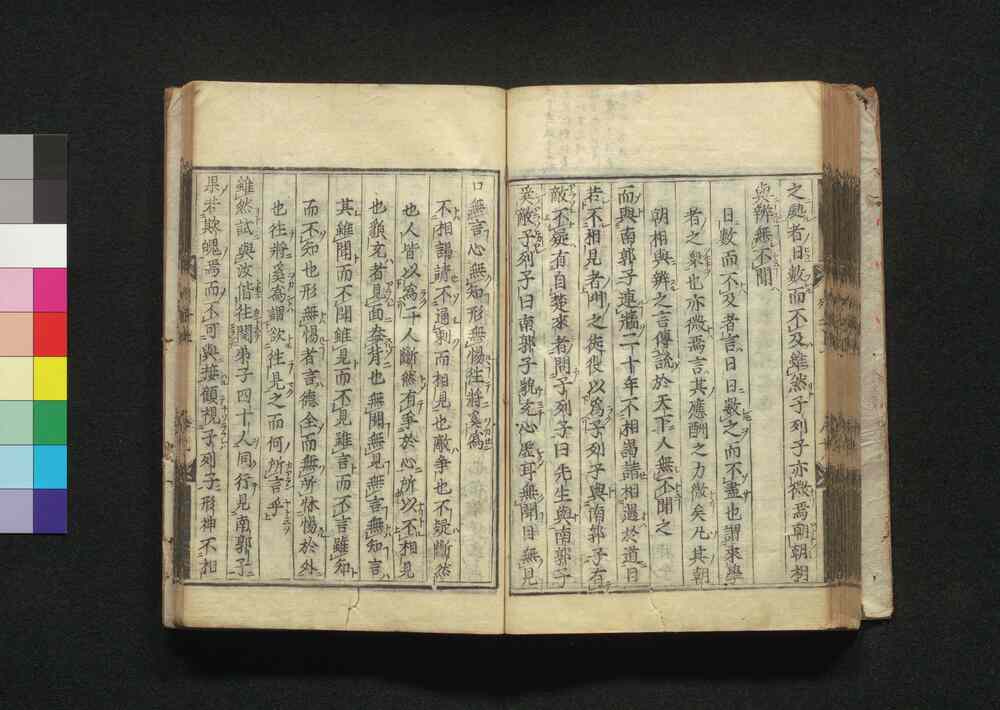 之處者日數而不及雖然子列子亦微焉朝朝相
與辨無不聞
日數而不及者言日日數之而不盡也謂來學
者之衆也亦微焉言其應酬之力微矣凡其朝
朝相與辨之言傳說於天下人無不聞之
而與南郭子連牆二十年不相謁請相遇於道目
若不相見者門之徒役以爲子列子與南郭子有
敵不疑有自楚來者問子列子曰先生與南郭子
奚敵子列子曰南郭子貌充心虛耳無聞目無見
口無言心無知形無惕往將奚爲
不相謁請不通刺而相見也敵爭也不疑斷然
也人皆以爲二人斷然有爭於心所以不相見
也貌充者見面盎背也無聞無見無言無知言
其雖聞而不聞雖見而不見雖言而不言雖知
而不知也形無惕者言德全而無所怵惕於外
也往將奚爲謂欲往見之而何所言乎
雖然試與汝偕往閱弟子四十人同行見南郭子
果若欺魄焉而不可與接顧視子列子形神不相